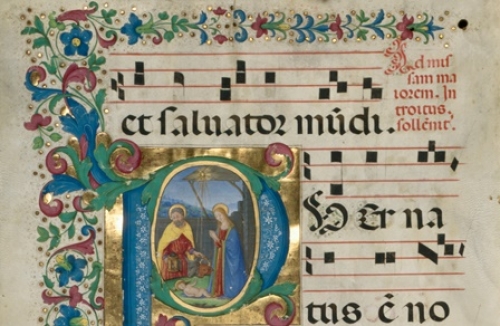 et saluator mūdi.
Ad mis
sam ma
iorem. In
troitus.
sollēnit.
PVEr na
tus ē no